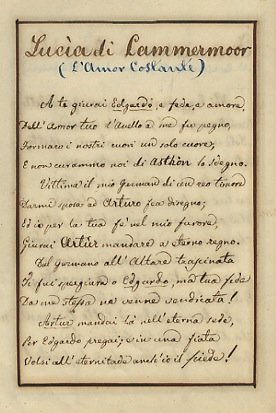 Lucìa di Lammermoor
(L'Amor Costante)
A te giurai Edgardo, e fede, e amore,
Dell' Amor tuo l'Avello a me fu pegno,
Formaro i nostri cuori un solo cuore,
E non curammo noi di Asthon lo sdegno.
Vittima il mio German di un reo timore
Darmi sposa ad Arturo fea disegno;
Ed io per la tua fè nel mio furore,
Giurai Artur mandare a eterno regno.
Dal germano all' Altare trascinata
Ti fui spergiura o Edgardo, ma tua fede
Da me stessa ne venne vendicata!
Artur mandai là nell' eterna sede,
Per Edgardo pregai; e in una fiata
Volsi all' eternitade anch' io il piede!